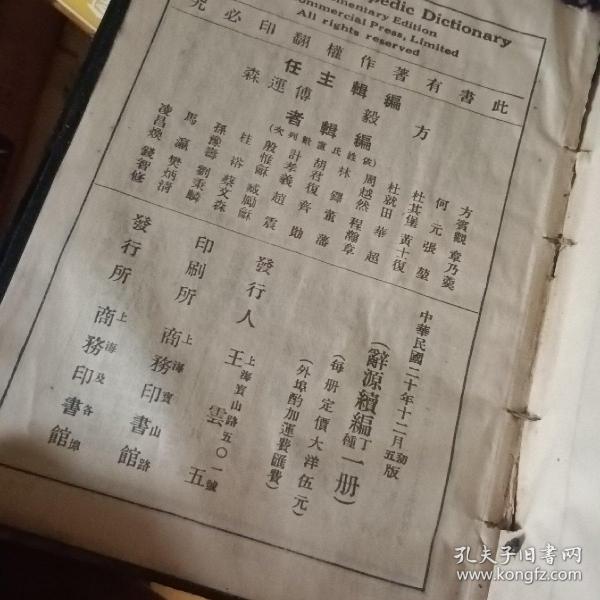 pedic Dictionary
mentary Edition
ommercial Press, Limited
All rights reserved
此書有著作權翻印必究
中華民國二十年十二月初五版
(辭源續編丁種一册)
(每册定價大洋伍元)
(外埠酌加運費匯費)
主編 方毅 傅運森
編輯者
方賓觀 章乃羹
何元 張堃
杜其堡 黃士復
杜就田 華超
周越然 程瀚章
林鐸 董藩
胡君復 齊勛
計孝義 趙震
殷惟龢 臧勵龢
桂浴 蔡文森
孫豫壽 劉秉麟
馬瀛 樊炳清
凌昌煥 錢智修
發行人 王雲五
上海寶山路五〇一號
印刷所 商務印書館
上海寶山路
發行所 商務印書館
上海及各埠
孔夫子旧书网
www.kongfz.com